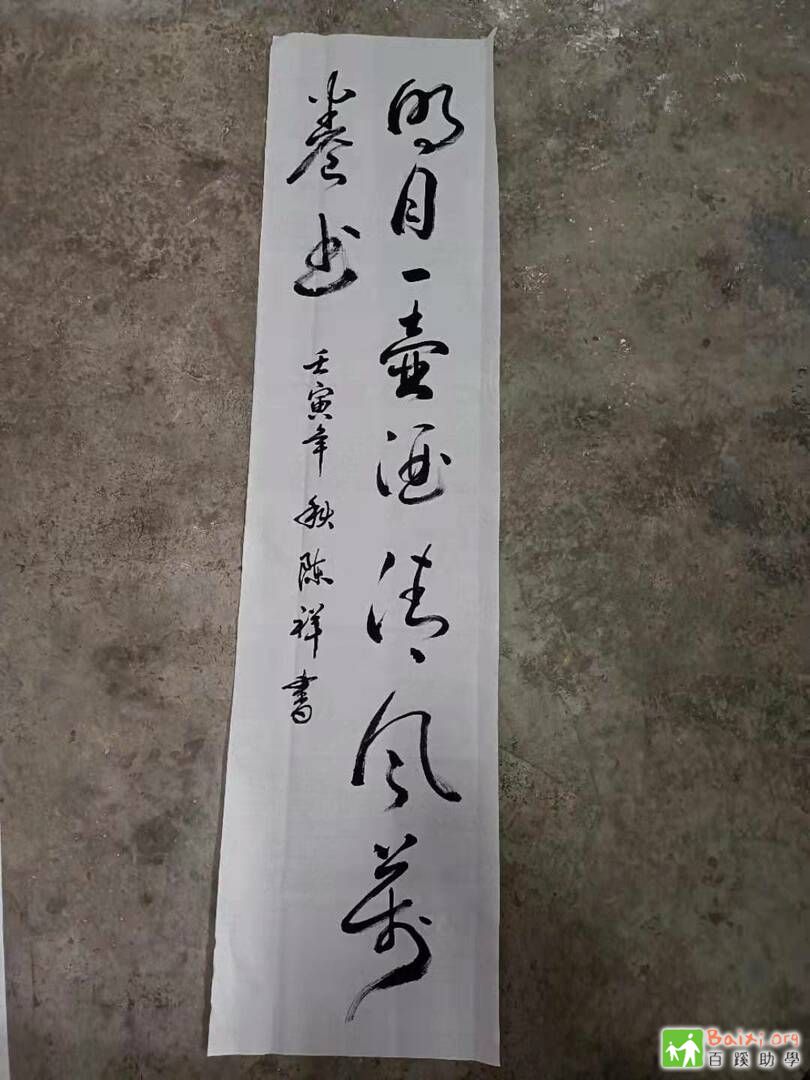 明月一壶酒清风万
卷书
壬寅年秋陈祥書
Baixi.Org
百蹊助學